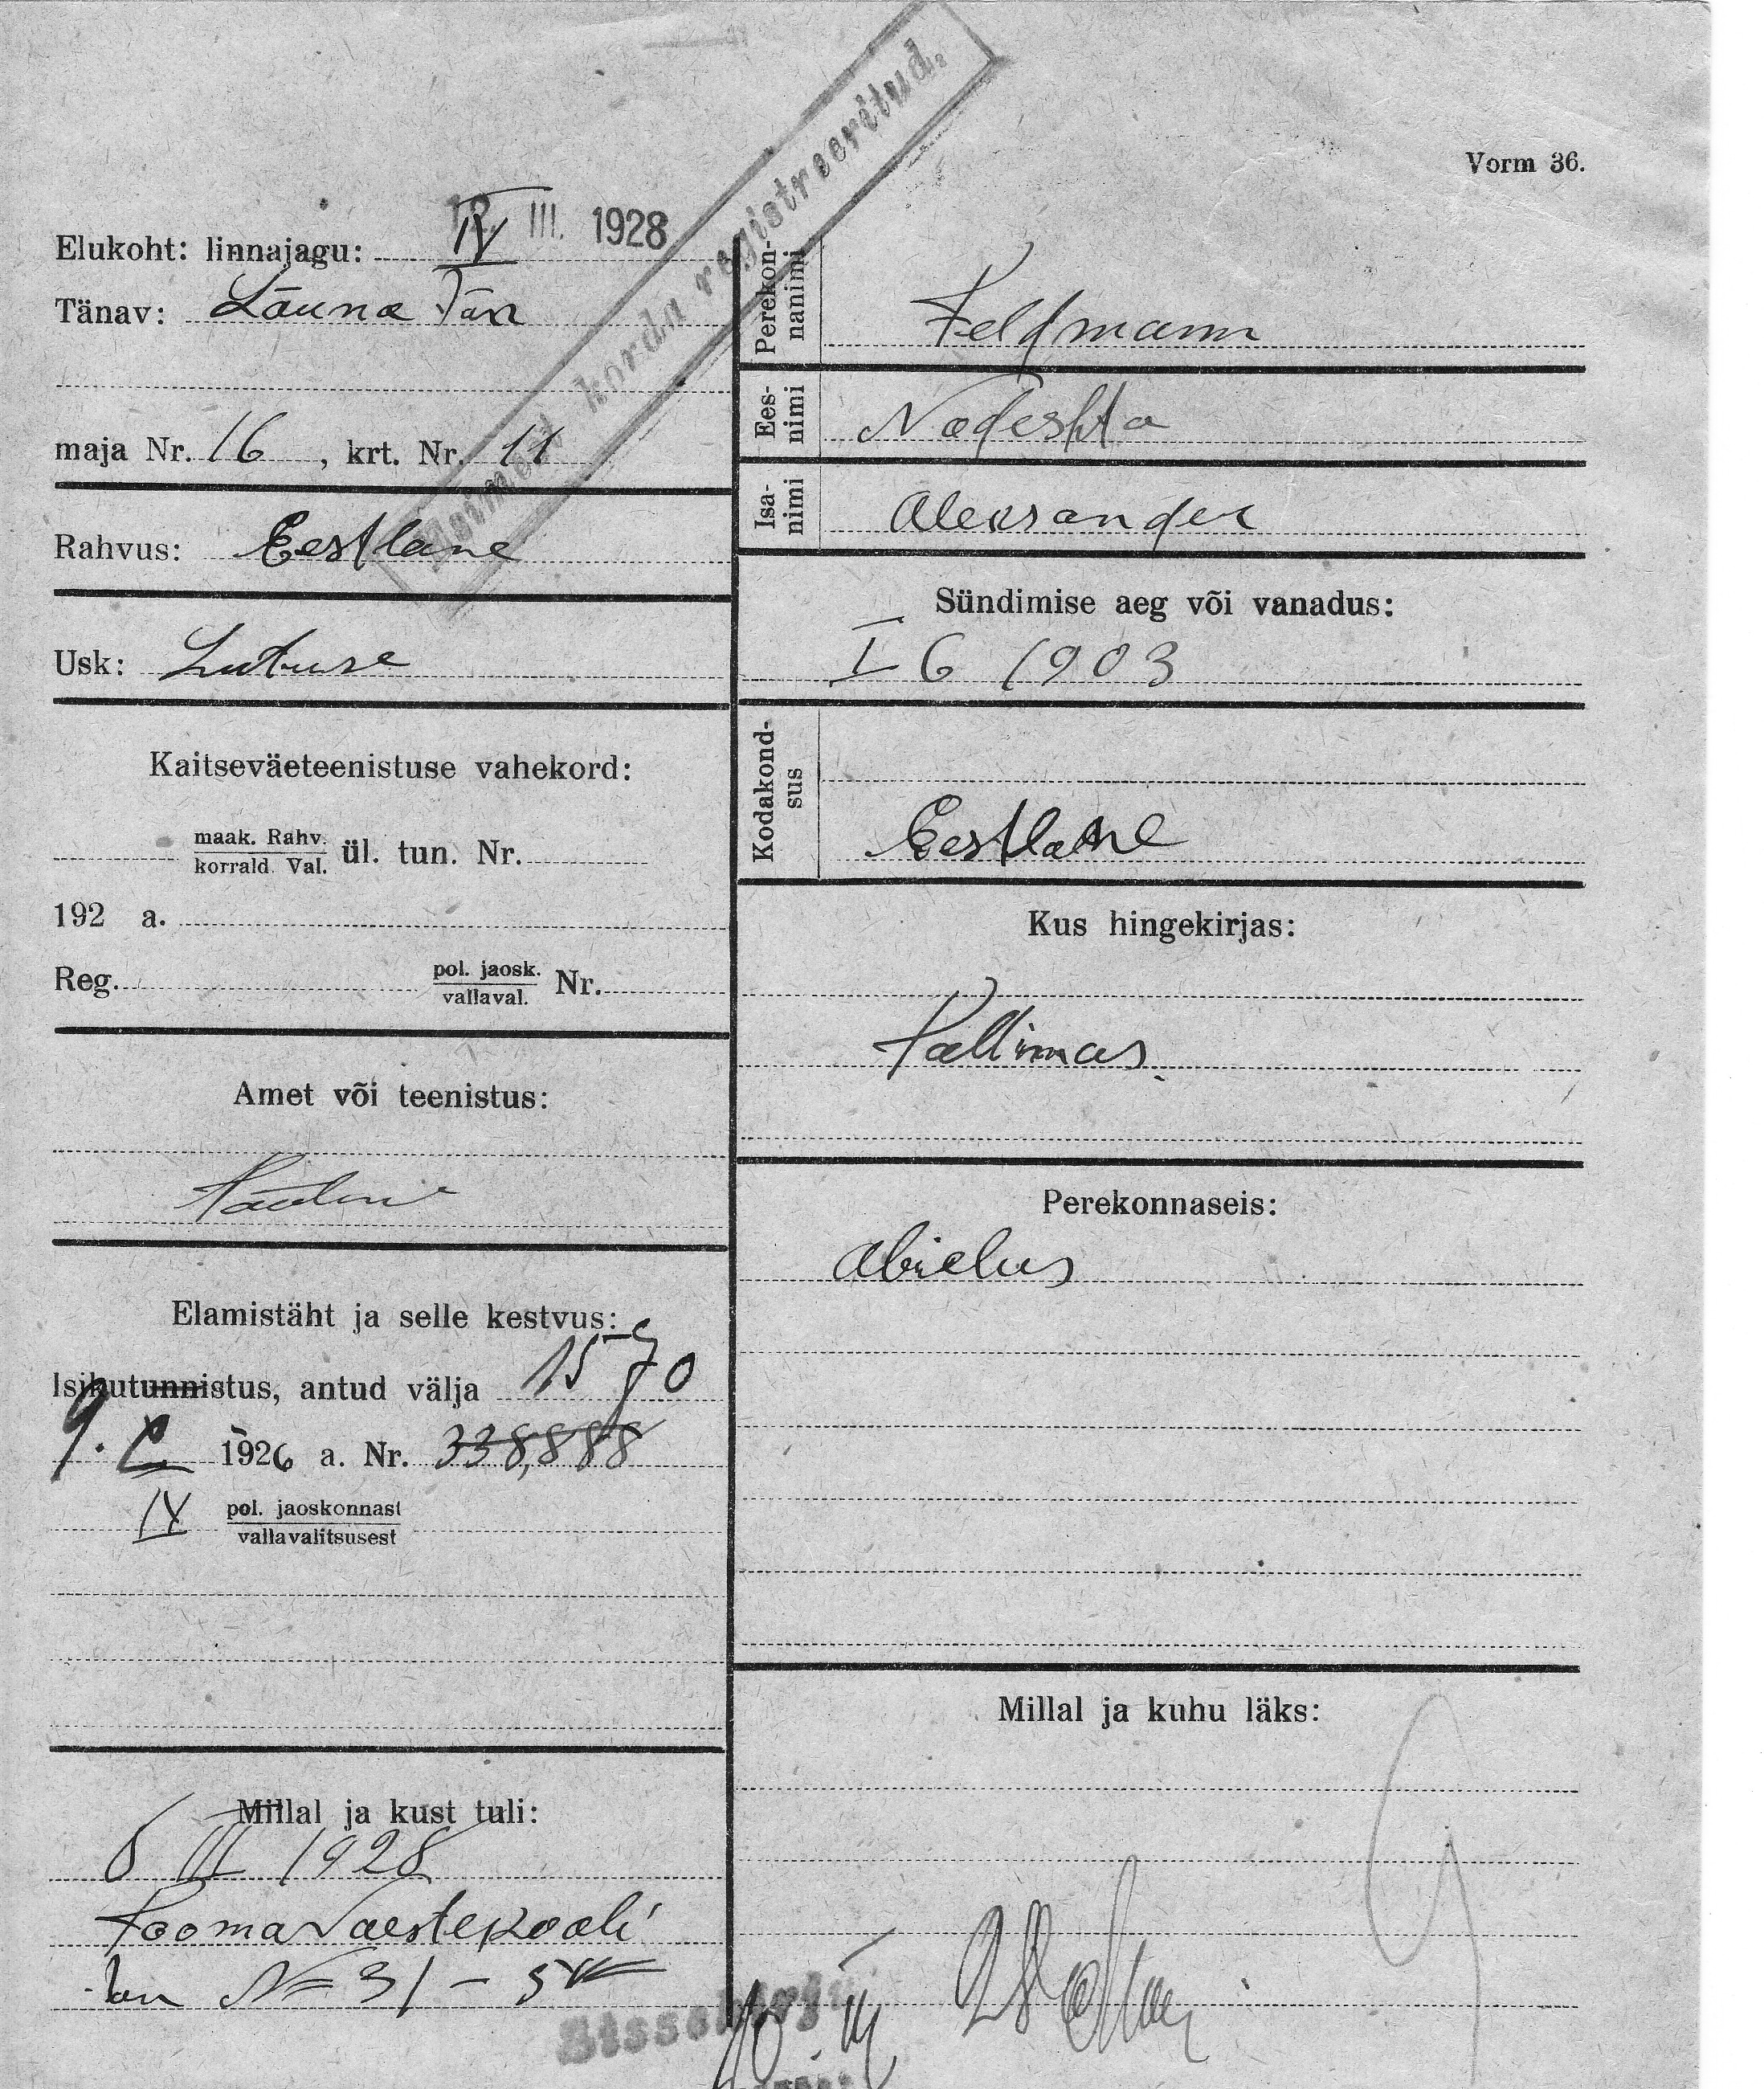 Vorm 36.
Esimest korda registreeritud.
III. 1928
Elukoht: linnajagu: IV
Tänav: Lõuna Tän
maja Nr. 16, krt. Nr. 11
Rahvus: Eestlane
Usk: Luteruse
Kaitseväeteenistuse vahekord:
maak. Rahv. ül. tun. Nr.
korrald. Val.
192 a.
Reg. pol. jaosk. Nr.
vallaval.
Amet või teenistus:
Elamistäht ja selle kestvus:
Isikutunnistus, antud välja 1570
9. X 1926 a. Nr. 338,888
IV pol. jaoskonnast
vallavalitsusest
Millal ja kust tuli:
6 III 1928
Kooma Vaestekooli
tän № 31 – 5
Perekon-
nanimi
Feldmann
Ees-
nimi
Nadeshda
Isa-
nimi
Aleksander
Sündimise aeg või vanadus:
I 6 1903
Kodakond-
sus
Eestlane
Kus hingekirjas:
Tallinnas
Perekonnaseis:
abielus
Millal ja kuhu läks:
Sissekirj